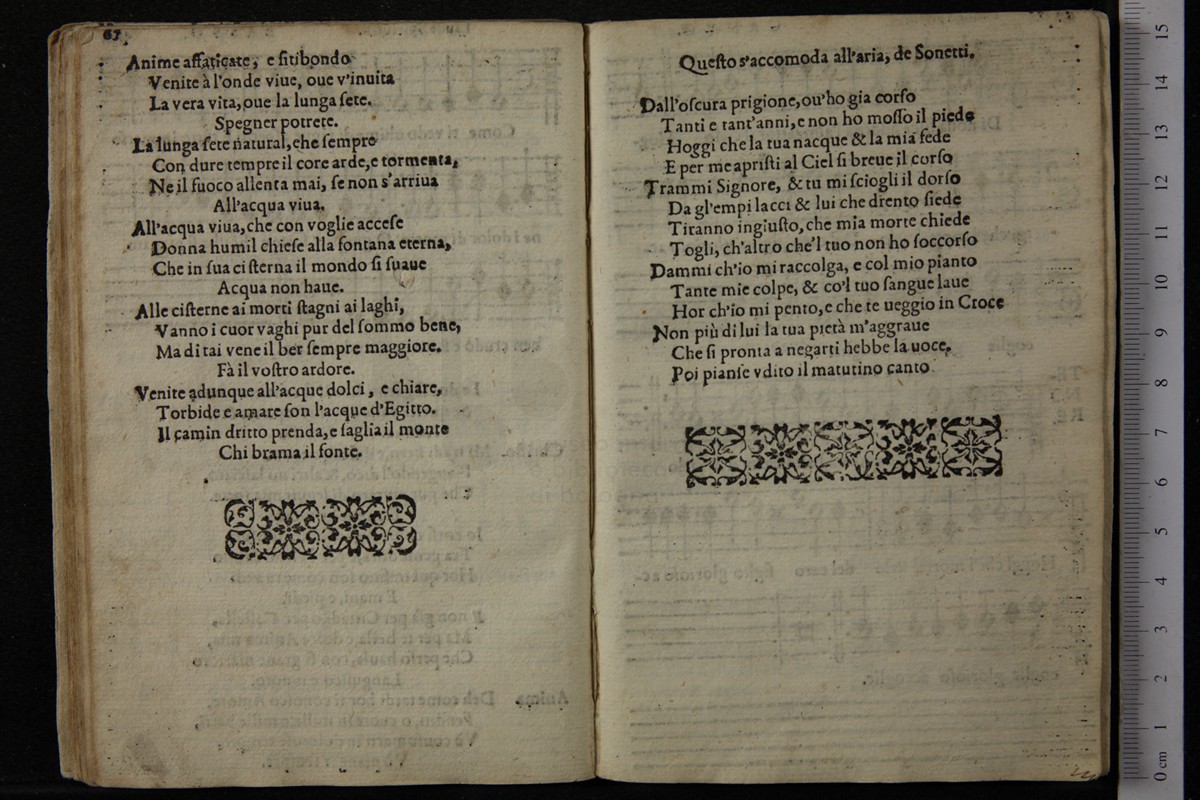 67
Anime affaticate, e ſitibondo
Venite à l'onde viue, oue v'inuita
La vera vita, oue la lunga ſete.
Spegner potrete.
La lunga ſete natural, che ſempre
Con dure tempre il core arde, e tormenta,
Ne il fuoco allenta mai, ſe non s'arriua
All'acqua viua.
All'acqua viua, che con voglie acceſe
Donna humil chieſe alla fontana eterna,
Che in ſua ciſterna il mondo ſi ſuaue
Acqua non haue.
Alle ciſterne ai morti ſtagni ai laghi,
Vanno i cuor vaghi pur del ſommo bene,
Ma di tai vene il ber ſempre maggiore.
Fà il voſtro ardore.
Venite adunque all'acque dolci, e chiare,
Torbide e amare ſon l'acque d'Egitto.
Il camin dritto prenda, e ſaglia il monte
Chi brama il fonte.
Queſto s'accomoda all'aria, de Sonetti.
Dall'oſcura prigione, ou'ho gia corſo
Tanti e tant'anni, e non ho moſſo il piede
Hoggi che la tua nacque & la mia fede
E per me apriſti al Ciel ſi breue il corſo
Trammi Signore, & tu mi ſciogli il dorſo
Da gl'empi lacci & lui che drento ſiede
Tiranno ingiuſto, che mia morte chiede
Togli, ch'altro che'l tuo non ho ſoccorſo
Dammi ch'io mi raccolga, e col mio pianto
Tante mie colpe, & co'l tuo ſangue laue
Hor ch'io mi pento, e che te ueggio in Croce
Non più di lui la tua pietà m'aggraue
Che ſi pronta a negarti hebbe la uoce,
Poi pianſe vdito il matutino canto
15
14
13
12
11
10
9
8
7
6
5
4
3
2
1
0 cm